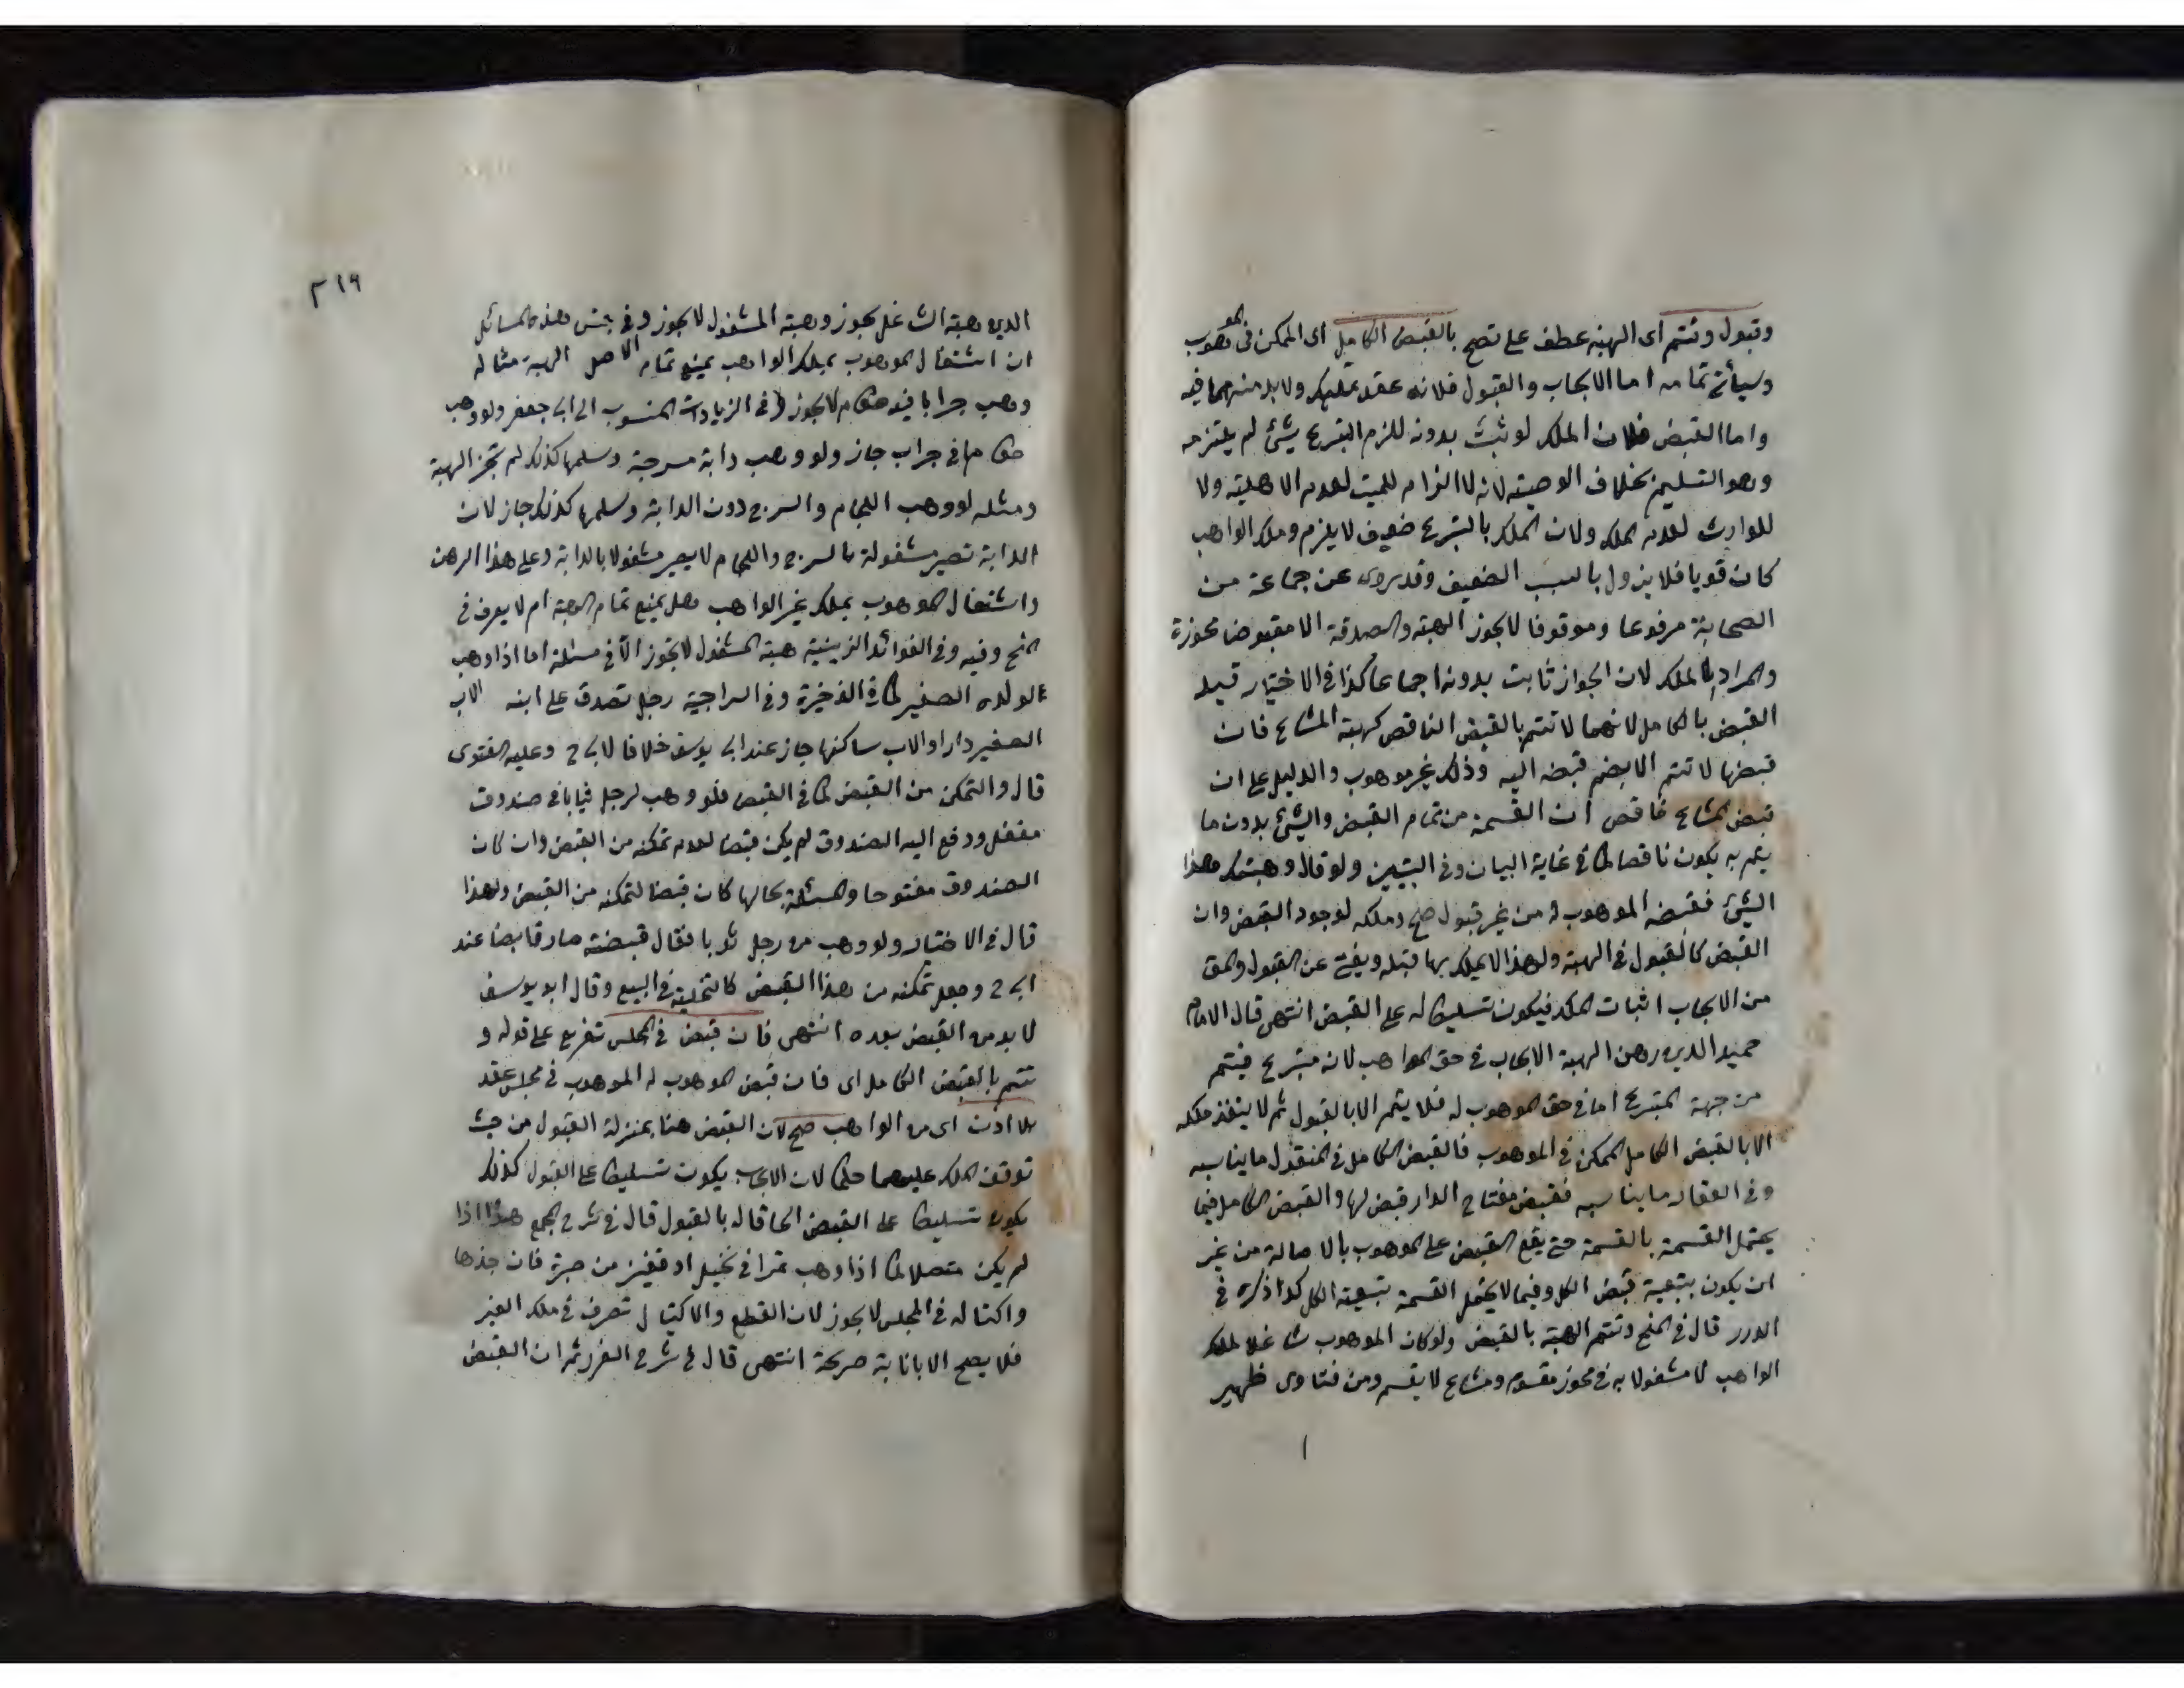 وقبول وتتم اى الهبة عطف على تصح بالقبض الكامل اى الممكن فى الموهوب
وسيأتى تمامه اما الايجاب والقبول فلانه عقد تمليك ولا بد منهما فيه
واما القبض فلان الملك لو ثبت بدونه للزم المتبرع شئ لم يلتزمه
وهو التسليم بخلاف الوصية لانه لا الزام للميت لعدم الاهلية ولا
للوارث لعدم الملك ولان الملك بالتبرع ضعيف لا يلزم وملك الواهب
كان قويا فلا يزول بالسبب الضعيف وقد روى عن جماعة من
الصحابة مرفوعا وموقوفا لا يجوز الهبة والصدقة الا مقبوضا محوزة
والمراد الملك لان الجواز ثابت بدونه اجماعا كذا فى الاختيار قيد
القبض بالكامل لانهما لا تتم بالقبض الناقص كهبة المشاع فان
قبضها لا تتم الا بضم قبضه اليه وذلك غير موهوب والدليل على ان
قبض المشاع ناقص ان القسمة من تمام القبض والشئ بدون ما
يتم به يكون ناقصا كما فى غاية البيان وفى التبيين ولو قال وهبتك هذا
الشئ فقبضه الموهوب له من غير قبول صح وملكه لوجود القبض وان
القبض كالقبول فى الهبة ولهذا لا يملك بها قبله ويغنى عن القبول والمق
من الايجاب اثبات الملك فيكون تسليطا له على القبض انتهى قال الامام
حميد الدين ركن الهبة الايجاب فى حق الواهب لانه متبرع فيتم
من جهة المتبرع اما فى حق الموهوب له فلا يتم الا بالقبول ثم لا ينفذ ملكه
الا بالقبض الكامل الممكن فى الموهوب فالقبض الكامل فى المنقول ما يناسبه
وفى العقار ما يناسبه فقبض مفتاح الدار قبض لها والقبض الكامل فيما
يحتمل القسمة بالقسمة حتى يقع القبض على الموهوب بالاصالة من غير
ان يكون بتبعية قبض الكل وفيما لا يحتمل القسمة بتبعية الكل كذا ذكره فى
الدرر قال فى المنح وتتم الهبة بالقبض ولو كان الموهوب شاغلا لملك
الواهب لا مشغولا به فى محوز مقسوم ومشاع لا يقسم ومن فتاوى ظهير
٢١٩
الدين وهبة الشاغل يجوز وهبة المشغول لا يجوز وفى جنس هذه المسائل
ان اشتغال الموهوب بملك الواهب يمنع تمام الهبة مثاله
الاصل
وهب جرابا فيه طعام لا يجوز وفى الزيادات المنسوب الى ابى جعفر ولو وهب
طعاما فى جراب جاز ولو وهب دابة مسرجة وسلمها كذلك لم تجز الهبة
ومثله لو وهب اللجام والسرج دون الدابة وسلمها كذلك جاز لان
الدابة تصير مشغولة بالسرج واللجام لا يصير مشغولا بالدابة وعلى هذا الرهن
واشتغال الموهوب بملك غير الواهب هل يمنع تمام الهبة ام لا يعرف فى
المنح وفيه وفى الفوائد الزينية هبة المشغول لا تجوز الا فى مسئلة اما اذا وهب
الاب
لولده الصغير كما فى الذخيرة وفى السراجية رجل تصدق على ابنه
الصغير دارا والاب ساكنها جاز عند ابى يوسف خلافا لابى ح وعليه الفتوى
قال والتمكن من القبض كما فى القبض فلو وهب لرجل ثيابا فى صندوق
مقفل ودفع اليه الصندوق لم يكن قبضا لعدم تمكنه من القبض وان كان
الصندوق مفتوحا والمسئلة بحالها كان قبضا لتمكنه من القبض ولهذا
قال فى الاختيار ولو وهب من رجل ثوبا فقال قبضته صار قابضا عند
ابى ح وجعل تمكنه من هذا القبض كالتخلية فى البيع وقال ابو يوسف
لا بد من القبض بيده انتهى فان قبض فى المجلس تفريع على قوله و
تتم بالقبض الكامل اى فان قبض الموهوب له الموهوب فى مجلس عقد
بلا اذن اى من الواهب صح لان القبض هنا بمنزلة القبول من حيث
توقف الملك عليهما حكما لان الايجاب يكون تسليطا على القبول كذلك
يكون تسليطا على القبض الحاقا له بالقبول قال فى شرح المجمع هذا اذا
لم يكن متصلا كما اذا وهب تمرا فى نخيل او قفيز من صبرة فان جذها
واكتاله فى المجلس لا يجوز لان القطع والاكتيال تصرف فى ملك الغير
فلا يصح الا بانابة صريحة انتهى قال فى شرح الغرر ثم ان القبض